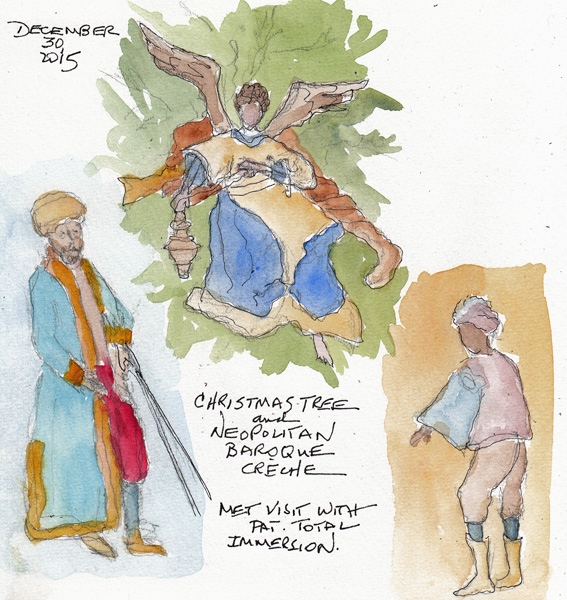 DECEMBER
30
2015
CHRISTMAS TREE
and
NEOPOLITAN
BAROQUE
CRÈCHE
MET VISIT WITH
PAT. TOTAL
IMMERSION.